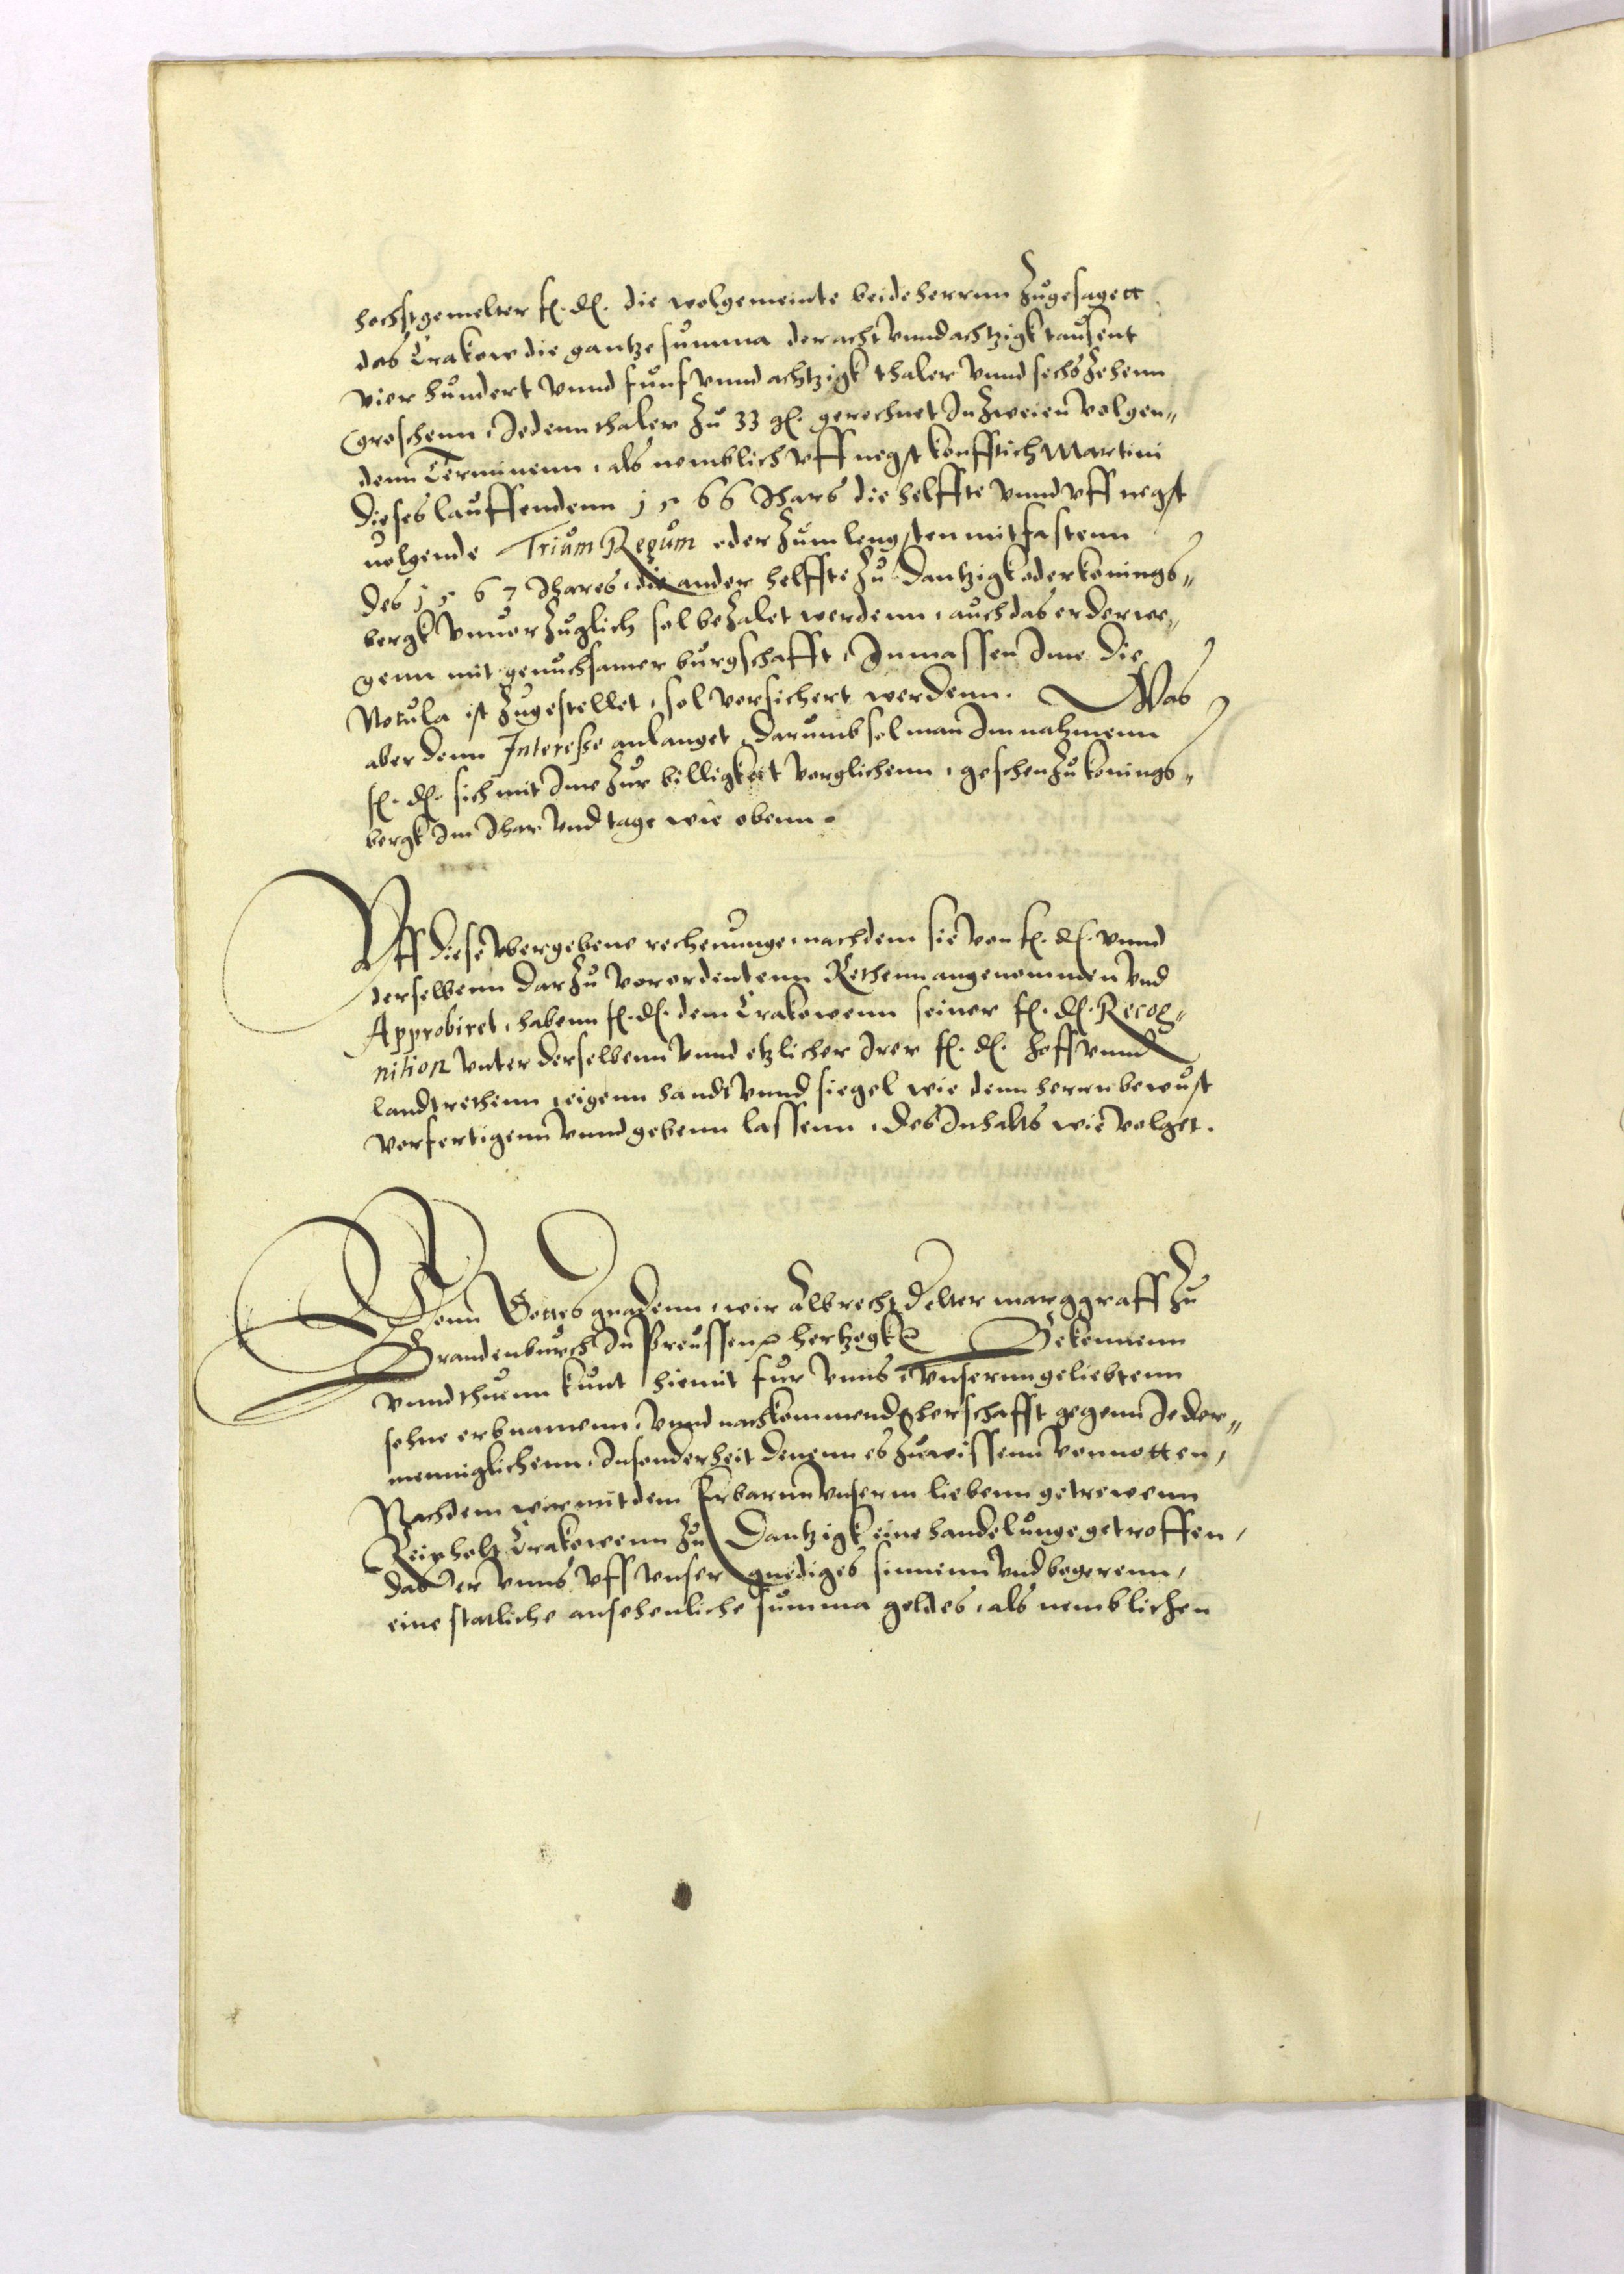 hochstgemelter f. d. die wolgemeinte beide herrnn zugesagett
das Crakow die gantze summa der acht vnnd achtzigk tausent
vier hundert vnnd funf vnnd achtzigk thaler vnnd sechszehenn
groschenn, Jedenn thaler zu 33 g. gerechnet In zweien volgen„
denn Terminenn, als nemblich vff negst konfftich Martini
dieses lauffendenn 1566 Jhars die helffte vnnd vff negst
uolgende Trium Regum oder zum lengsten mitfastenn
des 1567 Jhares, die ander helffte zu Dantzigk oder konings„
bergk vnuorzuglich sol bezalet werdenn, auch das er derwe„
genn mit genuchsamer burgschafft, Inmassen Ime die
Notula ist zugestellet, sol vorsichert werdenn. Was
aber denn Interesse anlanget, darumb sol man Im nahmenn
f. d. sich mit Ime zur billigkeit vorglichenn, geschen zu konings„
bergk Im Jhar vnd tage wie obenn.
Vff diese vbergebene rechenunge, nachdem sie von f. d. vnnd
derselbenn darzu vorordentenn Rethenn angenommen vnd
Approbiret, habenn f. d. dem Crakowenn seiner f. d. Recog„
nition vnter derselbenn vnnd etzlicher Irer f. d. hoff vnnd
landtrethenn, eigenn handt vnnd siegel wie denn herrn bewust
vorfertigenn vnnd gebenn lassenn, des Inhalts wie volget.
Vonn Gottes gnadenn, wir Albrecht d elter marggraff zu
Brandenburch In Preussen hertzogk Bekennenn
vnnd thuenn kunt hiemit fur vnns, vnsernn geliebtenn
sohne erbnamenn, vnnd nachkommende herschafft gegenn Jeder„
menniglichenn, Insonderheit denenn es zuwissenn vonnotten,
Nachdem wir mit dem Erbarnn vnserm liebenn getrewenn
Reinholt Crakowenn zu Dantzigk eine handelunge getroffen,
das er vnns vff vnser gnediges sinnenn vnd begerenn,
eine statliche ansehenliche summa geldes, als nemblichen